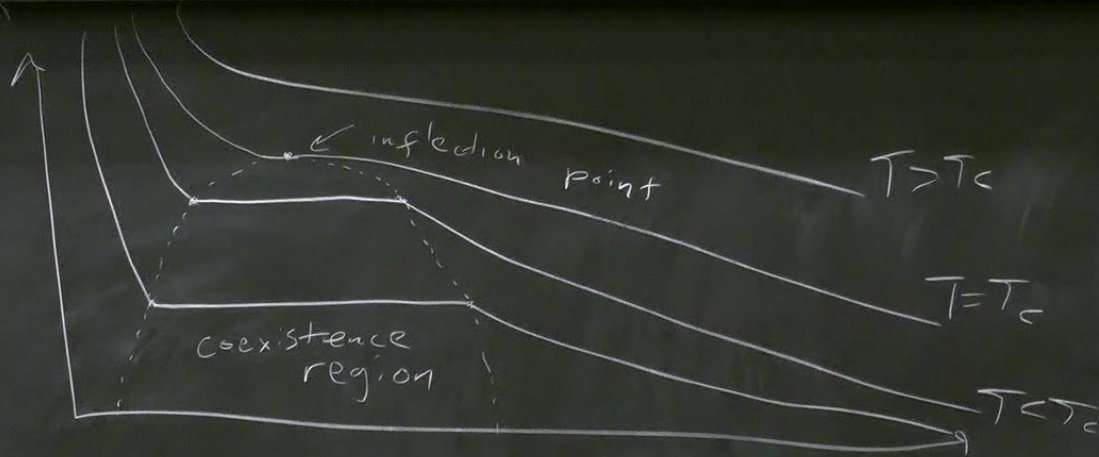 inflection
point
T>Tc
T=Tc
coexistence
region
T<Tc